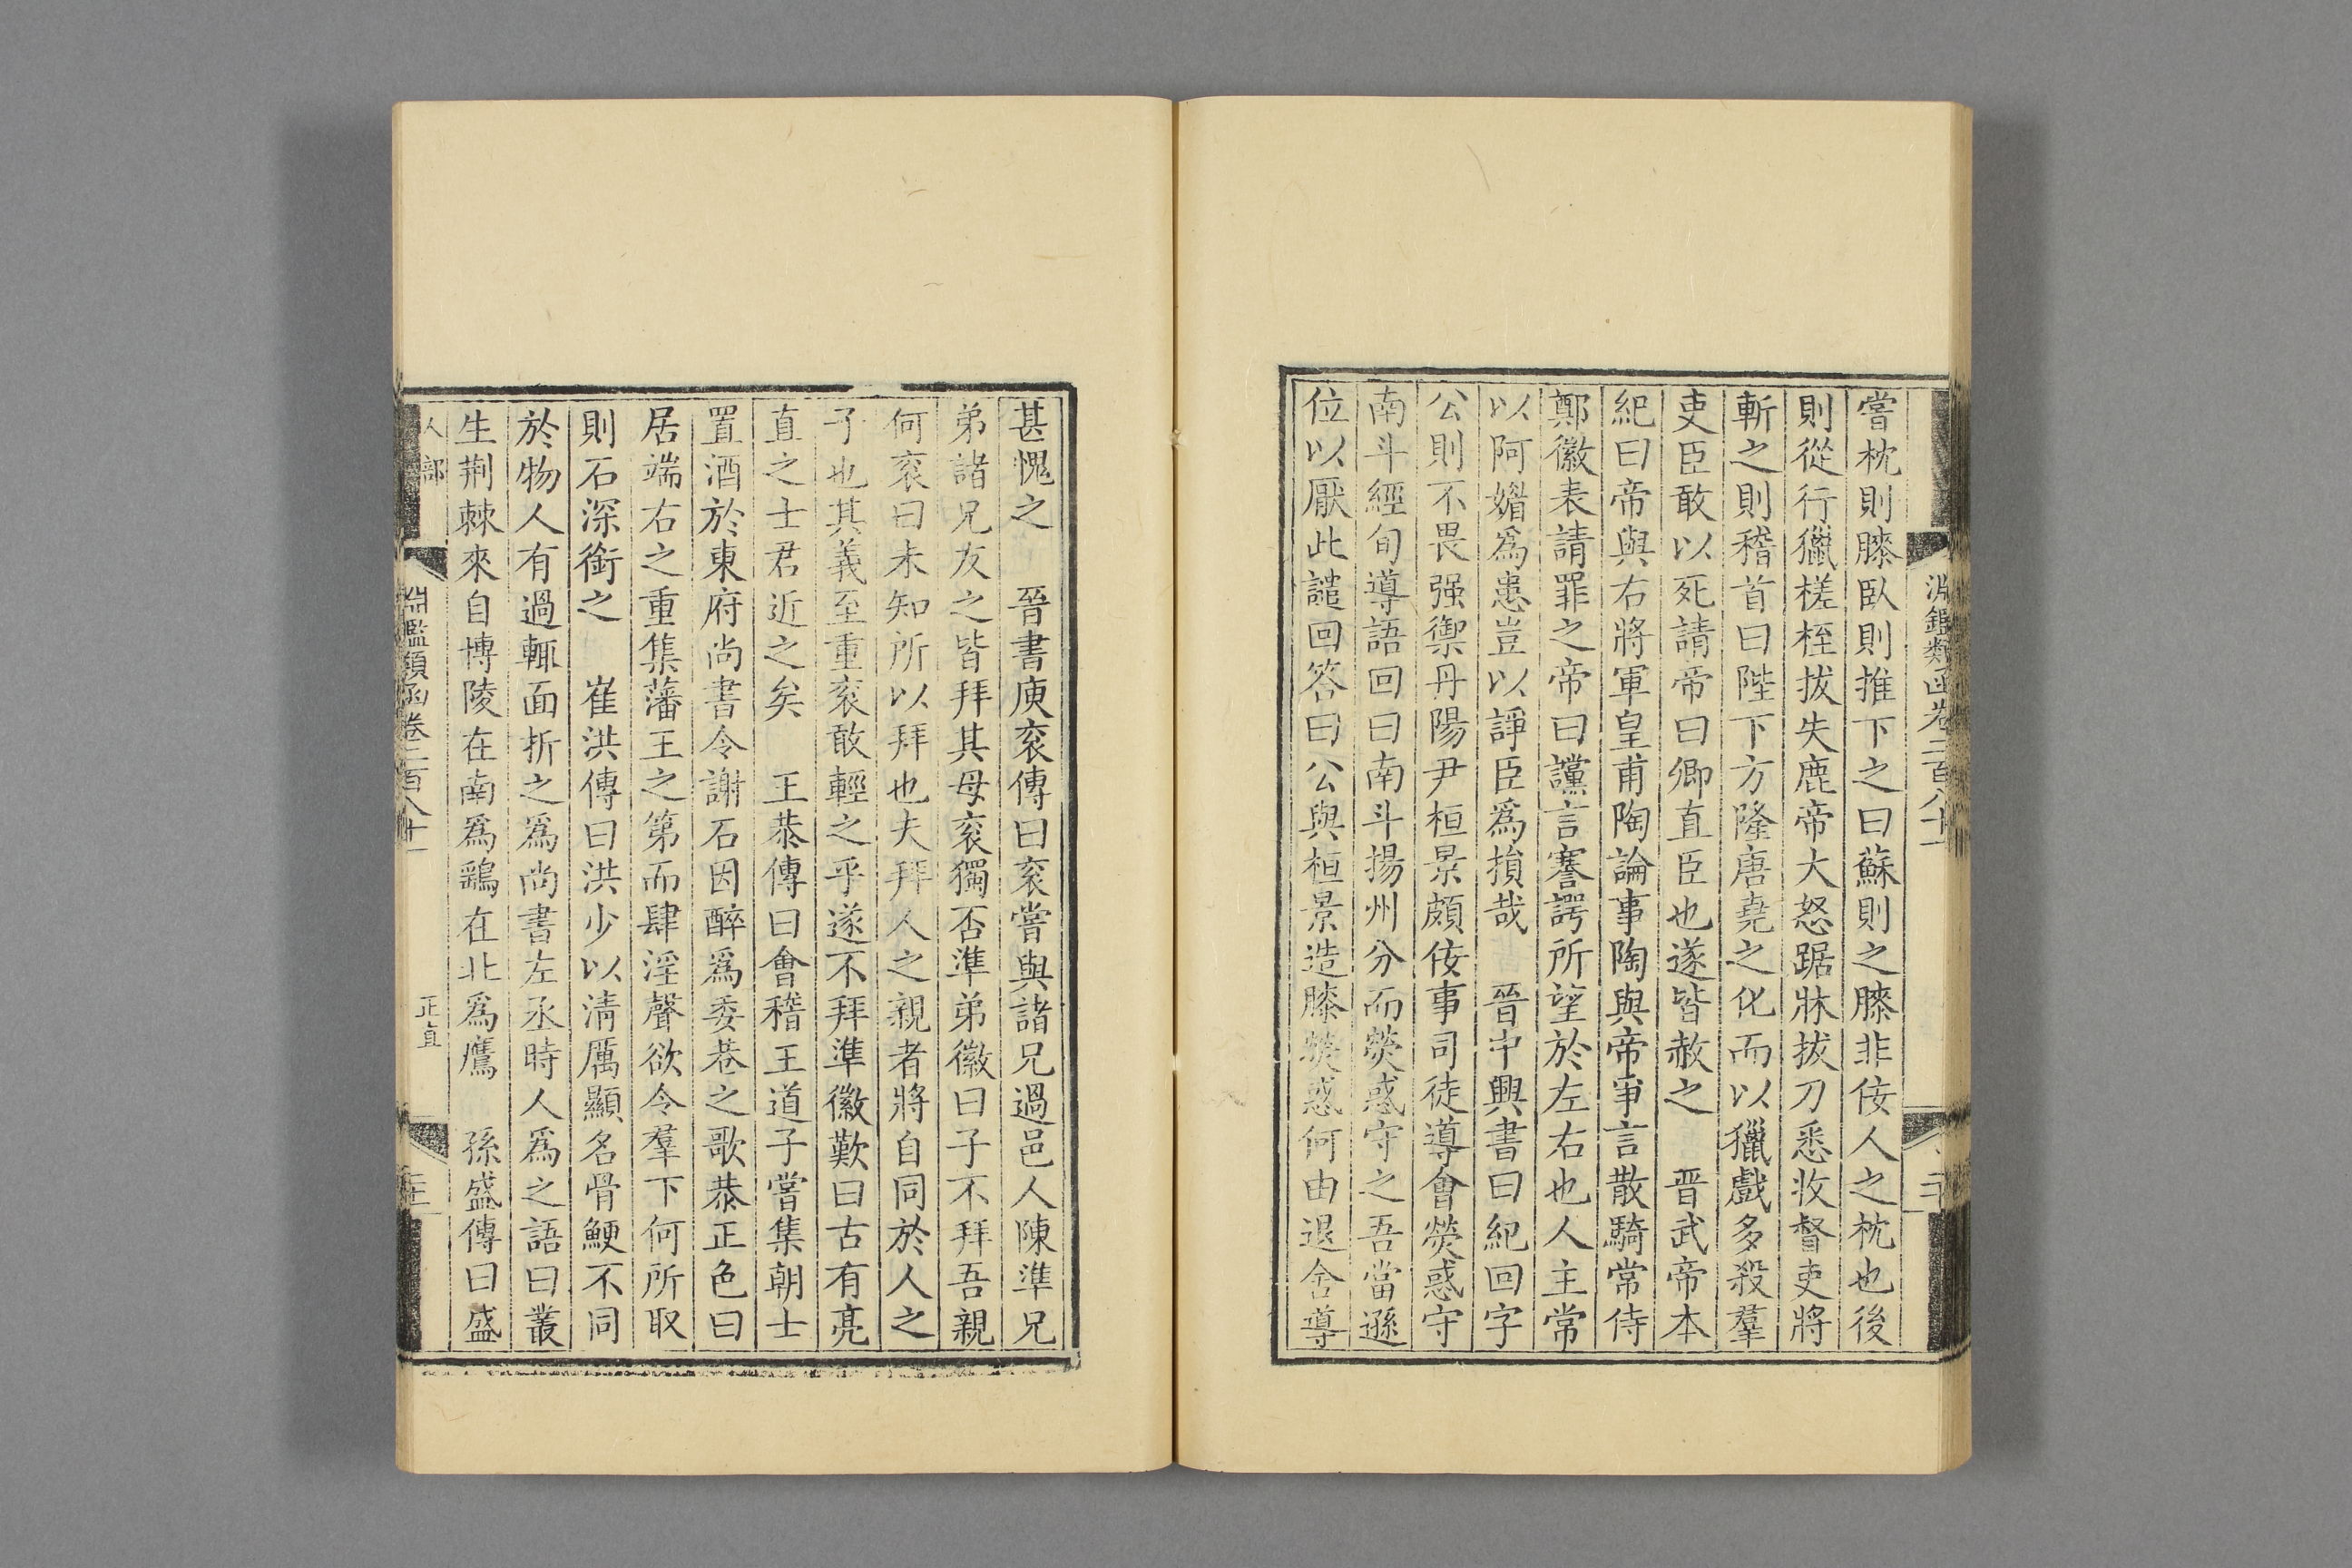 淵鑑類函卷二百八十一
嘗枕則膝臥則推下之曰蘇則之膝非佞人之枕也後
則從行獵槎桎拔失鹿帝大怒踞牀拔刀悉收督吏將
斬之則稽首曰陛下方隆唐堯之化而以獵戲多殺羣
吏臣敢以死請帝曰卿直臣也遂皆赦之　晉武帝本
紀曰帝與右將軍皇甫陶論事陶與帝爭言散騎常侍
鄭徽表請罪之帝曰讜言謇諤所望於左右也人主常
以阿媚爲患豈以諍臣爲損哉　晉中興書曰紀回字
公則不畏强禦丹陽尹桓景頗佞事司徒導會熒惑守
南斗經旬導語回曰南斗揚州分而熒惑守之吾當遜
位以厭此譴回答曰公與桓景造膝熒惑何由退舍導
甚愧之　晉書庾袞傳曰袞嘗與諸兄過邑人陳準兄
弟諸兄友之皆拜其母袞獨否準弟徽曰子不拜吾親
何袞曰未知所以拜也夫拜人之親者將自同於人之
子也其義至重袞敢輕之乎遂不拜準徽歎曰古有亮
直之士君近之矣　王恭傳曰會稽王道子嘗集朝士
置酒於東府尚書令謝石因醉爲委巷之歌恭正色曰
居端右之重集藩王之第而肆淫聲欲令羣下何所取
則石深銜之　崔洪傳曰洪少以清厲顯名骨鯁不同
於物人有過輒面折之爲尚書左丞時人爲之語曰叢
生荆棘來自博陵在南爲鷂在北爲鷹　孫盛傳曰盛
人部　淵鑑類函卷二百八十一　正直